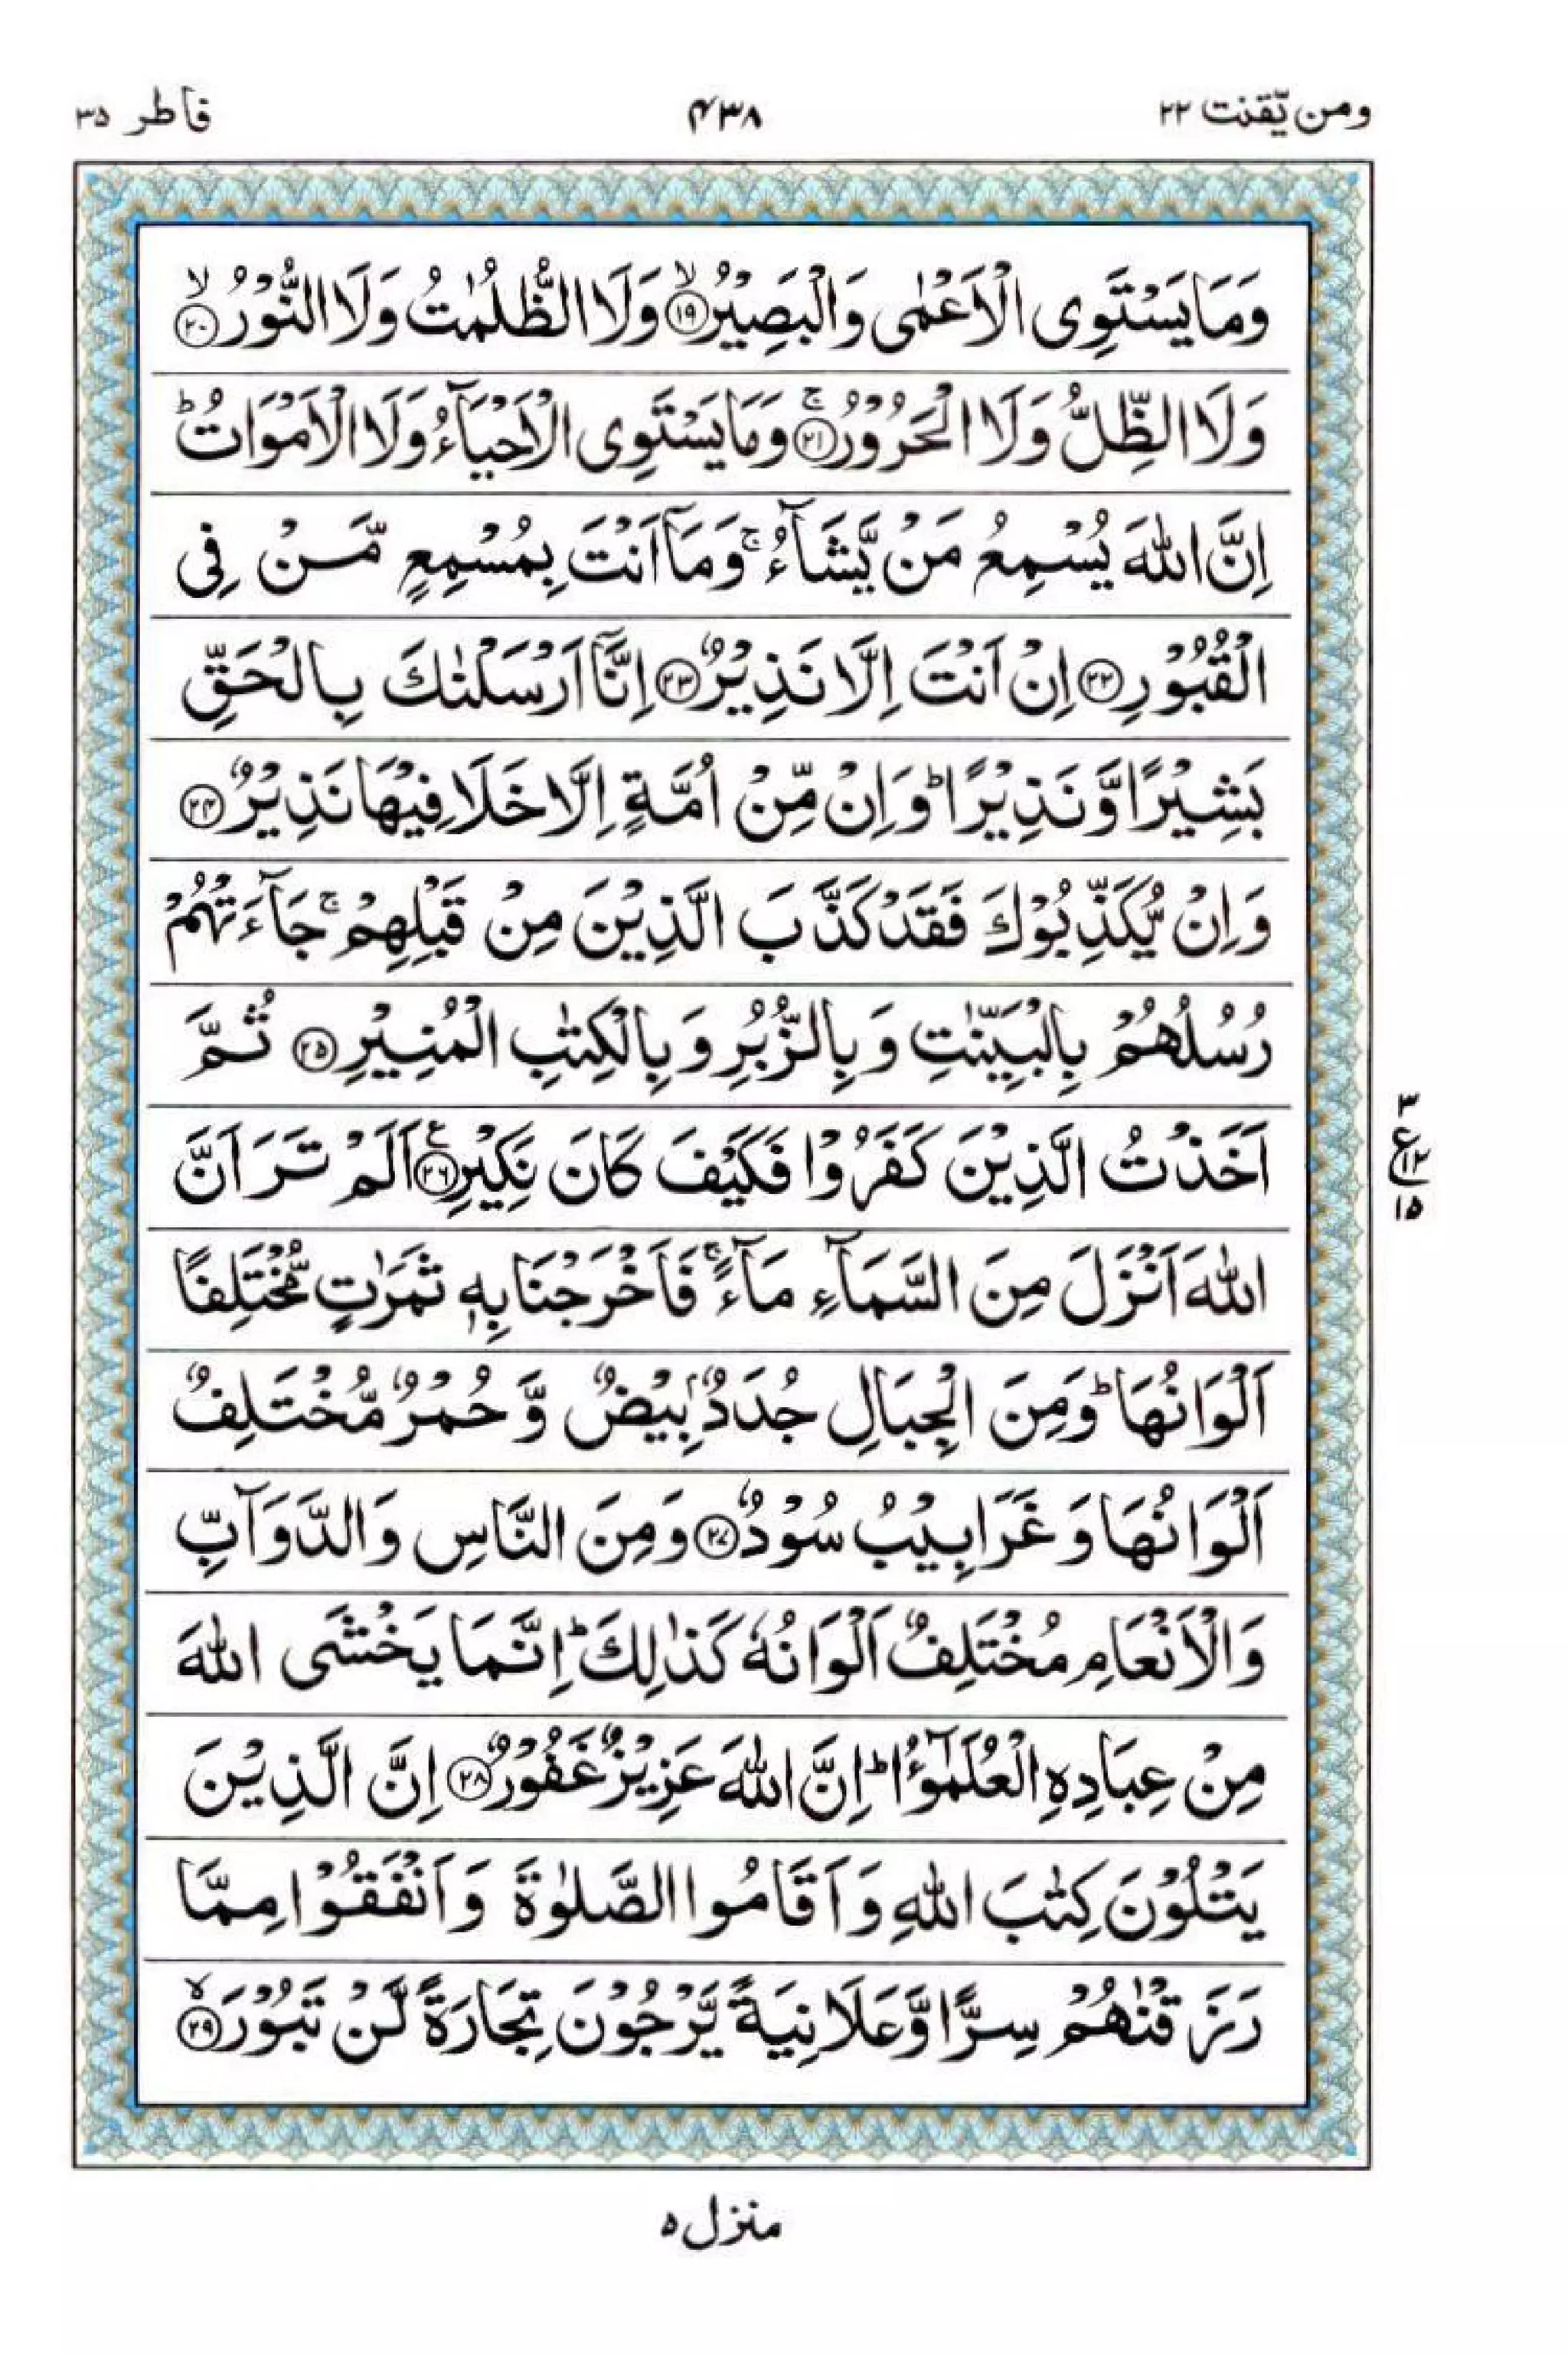 ومن یّقنت ۲۲
۴۳۸
فاطر ۳۵
وَمَا يَسْتَوِى الْاَعْمٰى وَالْبَصِيْرُ ۙ‏﴿۱۹﴾ وَلَا الظُّلُمٰتُ وَلَا النُّوْرُ ۙ‏﴿۲۰﴾
وَلَا الظِّلُّ وَلَا الْحَرُوْرُ ۚ‏﴿۲۱﴾ وَمَا يَسْتَوِى الْاَحْيَآءُ وَلَا الْاَمْوَاتُ ؕ
اِنَّ اللّٰهَ يُسْمِعُ مَنْ يَّشَآءُ ۚ وَمَاۤ اَنْتَ بِمُسْمِعٍ مَّنْ فِى
الْقُبُوْرِ ﴿۲۲﴾ اِنْ اَنْتَ اِلَّا نَذِيْرٌ ﴿۲۳﴾ اِنَّاۤ اَرْسَلْنٰكَ بِالْحَقِّ
بَشِيْرًا وَّنَذِيْرًا ؕ وَاِنْ مِّنْ اُمَّةٍ اِلَّا خَلَا فِيْهَا نَذِيْرٌ ﴿۲۴﴾
وَاِنْ يُّكَذِّبُوْكَ فَقَدْ كَذَّبَ الَّذِيْنَ مِنْ قَبْلِهِمْ ۚ جَآءَتْهُمْ
رُسُلُهُمْ بِالْبَيِّنٰتِ وَبِالزُّبُرِ وَبِالْكِتٰبِ الْمُنِيْرِ ﴿۲۵﴾ ثُمَّ
اَخَذْتُ الَّذِيْنَ كَفَرُوْا فَكَيْفَ كَانَ نَكِيْرِ ﴿۲۶﴾ اَلَمْ تَرَ اَنَّ
۳
ع ۱۲
۱۵
اللّٰهَ اَنْزَلَ مِنَ السَّمَآءِ مَآءً ۚ فَاَخْرَجْنَا بِهٖ ثَمَرٰتٍ مُّخْتَلِفًا
اَلْوَانُهَا ؕ وَمِنَ الْجِبَالِ جُدَدٌۢ بِيْضٌ وَّحُمْرٌ مُّخْتَلِفٌ
اَلْوَانُهَا وَغَرَابِيْبُ سُوْدٌ ﴿۲۷﴾ وَمِنَ النَّاسِ وَالدَّوَآبِّ
وَالْاَنْعَامِ مُخْتَلِفٌ اَلْوَانُهٗ كَذٰلِكَ ؕ اِنَّمَا يَخْشَى اللّٰهَ
مِنْ عِبَادِهِ الْعُلَمٰٓؤُا ؕ اِنَّ اللّٰهَ عَزِيْزٌ غَفُوْرٌ ﴿۲۸﴾ اِنَّ الَّذِيْنَ
يَتْلُوْنَ كِتٰبَ اللّٰهِ وَاَقَامُوا الصَّلٰوةَ وَاَنْفَقُوْا مِمَّا
رَزَقْنٰهُمْ سِرًّا وَّعَلَانِيَةً يَّرْجُوْنَ تِجَارَةً لَّنْ تَبُوْرَ ۙ‏﴿۲۹﴾
منزل ۵